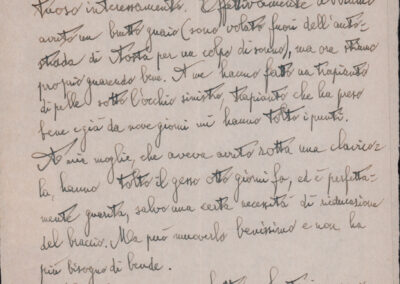 tuoso interessamento. Effettivamente abbiamo
avuto un brutto guaio (sono volato fuori dell'auto=
strada di Aosta per un colpo di sonno), ma ora stiamo
proprio guarendo bene. A me hanno fatto un trapianto
di pelle sotto l'occhio sinistro, trapianto che ha preso
bene e già da nove giorni mi hanno tolto i punti.
A mia moglie, che aveva avuto rotta una clavico=
la, hanno tolto il gesso otto giorni fa, ed è perfetta=
mente guarita, salvo una certa necessità di rieducazione
del braccio. Ma può muoverlo benissimo e non ha
più bisogno di bende.